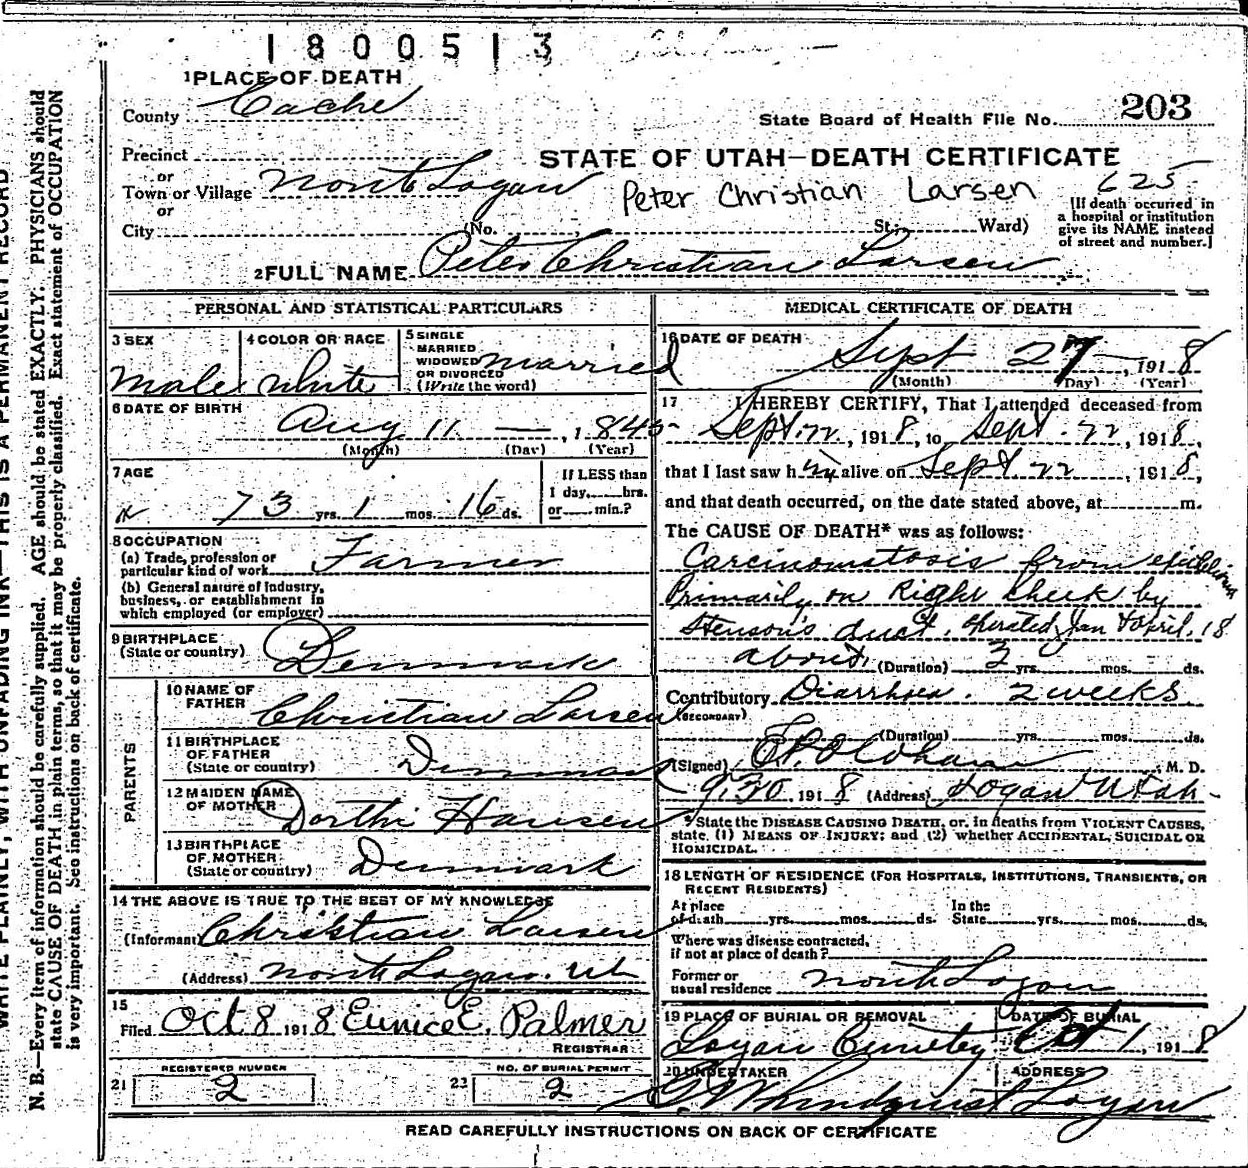 1800513
1 PLACE OF DEATH
County Cache
State Board of Health File No. 203
Precinct
or
Town or Village North Logan
or
City
STATE OF UTAH—DEATH CERTIFICATE
Peter Christian Larsen
625
(No. St.; Ward)
[If death occurred in
a hospital or institution
give its NAME instead
of street and number.]
2 FULL NAME Peter Christian Larsen
PERSONAL AND STATISTICAL PARTICULARS
3 SEX
Male
4 COLOR OR RACE
White
5 SINGLE
MARRIED
WIDOWED
OR DIVORCED
(Write the word)
married
6 DATE OF BIRTH
Aug 11 — , 1845
(Month) (Day) (Year)
7 AGE
73 yrs. 1 mos. 16 ds.
If LESS than
1 day, hrs.
or min.?
8 OCCUPATION
(a) Trade, profession or
particular kind of work Farmer
(b) General nature of Industry,
business, or establishment in
which employed (or employer)
9 BIRTHPLACE
(State or country) Denmark
PARENTS
10 NAME OF
FATHER Christian Larsen
11 BIRTHPLACE
OF FATHER
(State or country) Denmark
12 MAIDEN NAME
OF MOTHER Dorthi Hansen
13 BIRTHPLACE
OF MOTHER
(State or country) Denmark
14 THE ABOVE IS TRUE TO THE BEST OF MY KNOWLEDGE
(Informant) Christian Larsen
(Address) North Logan. Ut
15
Filed Oct 8 1918 Eunice E. Palmer
REGISTRAR
21 REGISTERED NUMBER
2
23 NO. OF BURIAL PERMIT
2
MEDICAL CERTIFICATE OF DEATH
16 DATE OF DEATH
Sept 27 , 1918
(Month) (Day) (Year)
17 I HEREBY CERTIFY, That I attended deceased from
Sept. 22, 1918, to Sept. 22, 1918,
that I last saw him alive on Sept 22, 1918,
and that death occurred, on the date stated above, at m.
The CAUSE OF DEATH* was as follows:
Carcinomatosis from epithelioma
Primarily on Right cheek by
Stenson's duct. operated Jan & April. 18
about (Duration) 3 yrs. mos. ds.
Contributory Diarrhoea. 2 weeks
(SECONDARY)
(Duration) yrs. mos. ds.
(Signed) M. D.
9.30. 1918 (Address) Logan Utah-
* State the DISEASE CAUSING DEATH, or, in deaths from VIOLENT CAUSES,
state, (1) MEANS OF INJURY; and (2) whether ACCIDENTAL, SUICIDAL OR
HOMICIDAL.
18 LENGTH OF RESIDENCE (FOR HOSPITALS, INSTITUTIONS, TRANSIENTS, OR
RECENT RESIDENTS)
At place
of death yrs. mos. ds.
In the
State yrs. mos. ds.
Where was disease contracted,
if not at place of death?
Former or
usual residence North Logan
19 PLACE OF BURIAL OR REMOVAL
Logan Cemetery
DATE OF BURIAL
Oct 1, 1918
20 UNDERTAKER
Lindquist
ADDRESS
Logan
READ CAREFULLY INSTRUCTIONS ON BACK OF CERTIFICATE
WRITE PLAINLY, WITH UNFADING INK—THIS IS A PERMANENT RECORD
N. B.—Every item of information should be carefully supplied. AGE should be stated EXACTLY. PHYSICIANS should
state CAUSE OF DEATH in plain terms, so that it may be properly classified. Exact statement of OCCUPATION
is very important. See instructions on back of certificate.